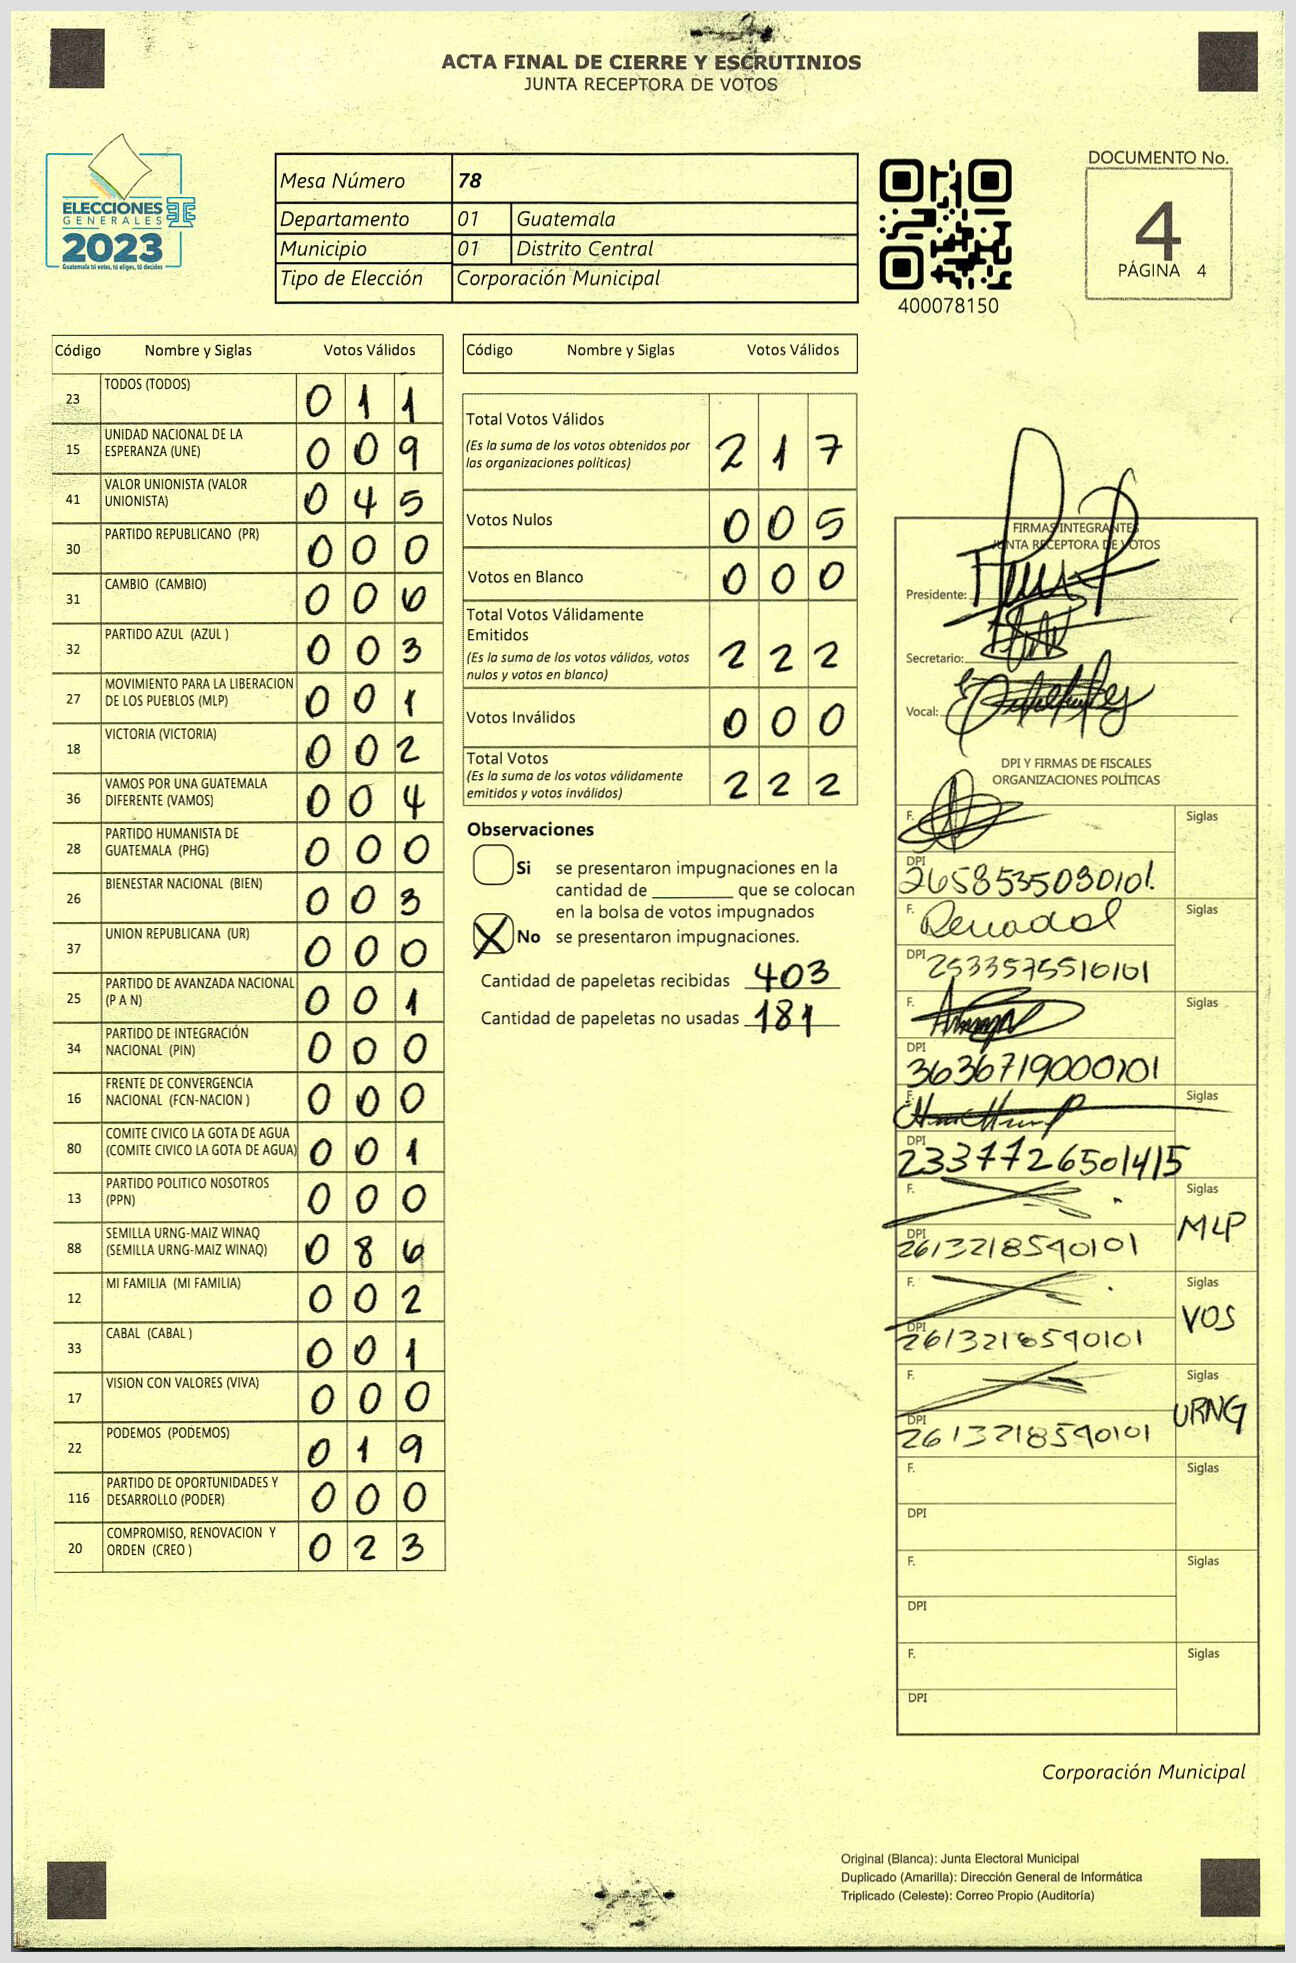 ACTA FINAL DE CIERRE Y ESCRUTINIOS
JUNTA RECEPTORA DE VOTOS
ELECCIONES
GENERALES
2023
Guatemala tú votas, tú eliges, tú decides
Mesa Número 78
Departamento 01 Guatemala
Municipio 01 Distrito Central
Tipo de Elección Corporación Municipal
400078150
DOCUMENTO No.
4
PÁGINA 4
Código Nombre y Siglas Votos Válidos
23 TODOS (TODOS) 0 1 1
15 UNIDAD NACIONAL DE LA
ESPERANZA (UNE) 0 0 9
41 VALOR UNIONISTA (VALOR
UNIONISTA) 0 4 5
30 PARTIDO REPUBLICANO (PR) 0 0 0
31 CAMBIO (CAMBIO) 0 0 6
32 PARTIDO AZUL (AZUL ) 0 0 3
27 MOVIMIENTO PARA LA LIBERACION
DE LOS PUEBLOS (MLP) 0 0 1
18 VICTORIA (VICTORIA) 0 0 2
36 VAMOS POR UNA GUATEMALA
DIFERENTE (VAMOS) 0 0 4
28 PARTIDO HUMANISTA DE
GUATEMALA (PHG) 0 0 0
26 BIENESTAR NACIONAL (BIEN) 0 0 3
37 UNION REPUBLICANA (UR) 0 0 0
25 PARTIDO DE AVANZADA NACIONAL
(P A N) 0 0 1
34 PARTIDO DE INTEGRACIÓN
NACIONAL (PIN) 0 0 0
16 FRENTE DE CONVERGENCIA
NACIONAL (FCN-NACION ) 0 0 0
80 COMITE CIVICO LA GOTA DE AGUA
(COMITE CIVICO LA GOTA DE AGUA) 0 0 1
13 PARTIDO POLITICO NOSOTROS
(PPN) 0 0 0
88 SEMILLA URNG-MAIZ WINAQ
(SEMILLA URNG-MAIZ WINAQ) 0 8 6
12 MI FAMILIA (MI FAMILIA) 0 0 2
33 CABAL (CABAL ) 0 0 1
17 VISION CON VALORES (VIVA) 0 0 0
22 PODEMOS (PODEMOS) 0 1 9
116 PARTIDO DE OPORTUNIDADES Y
DESARROLLO (PODER) 0 0 0
20 COMPROMISO, RENOVACION Y
ORDEN (CREO ) 0 2 3
Código Nombre y Siglas Votos Válidos
Total Votos Válidos
(Es la suma de los votos obtenidos por
las organizaciones políticas) 2 1 7
Votos Nulos 0 0 5
Votos en Blanco 0 0 0
Total Votos Válidamente
Emitidos
(Es la suma de los votos válidos, votos
nulos y votos en blanco) 2 2 2
Votos Inválidos 0 0 0
Total Votos
(Es la suma de los votos válidamente
emitidos y votos inválidos) 2 2 2
Observaciones
Si se presentaron impugnaciones en la
cantidad de ________ que se colocan
en la bolsa de votos impugnados
X No se presentaron impugnaciones.
Cantidad de papeletas recibidas 403
Cantidad de papeletas no usadas 181
FIRMAS INTEGRANTES
JUNTA RECEPTORA DE VOTOS
Presidente:
Secretario:
Vocal:
DPI Y FIRMAS DE FISCALES
ORGANIZACIONES POLÍTICAS
F. Siglas
DPI 2658535080101.
F. Siglas
DPI 2533575510101
F. Siglas
DPI 3636719000101
F. Siglas
DPI 2337726501415
F. Siglas
MLP
DPI 2613218590101
F. Siglas
VOS
DPI 2613218590101
F. Siglas
URNG
DPI 2613218590101
F. Siglas
DPI
F. Siglas
DPI
F. Siglas
DPI
Corporación Municipal
Original (Blanca): Junta Electoral Municipal
Duplicado (Amarilla): Dirección General de Informática
Triplicado (Celeste): Correo Propio (Auditoría)